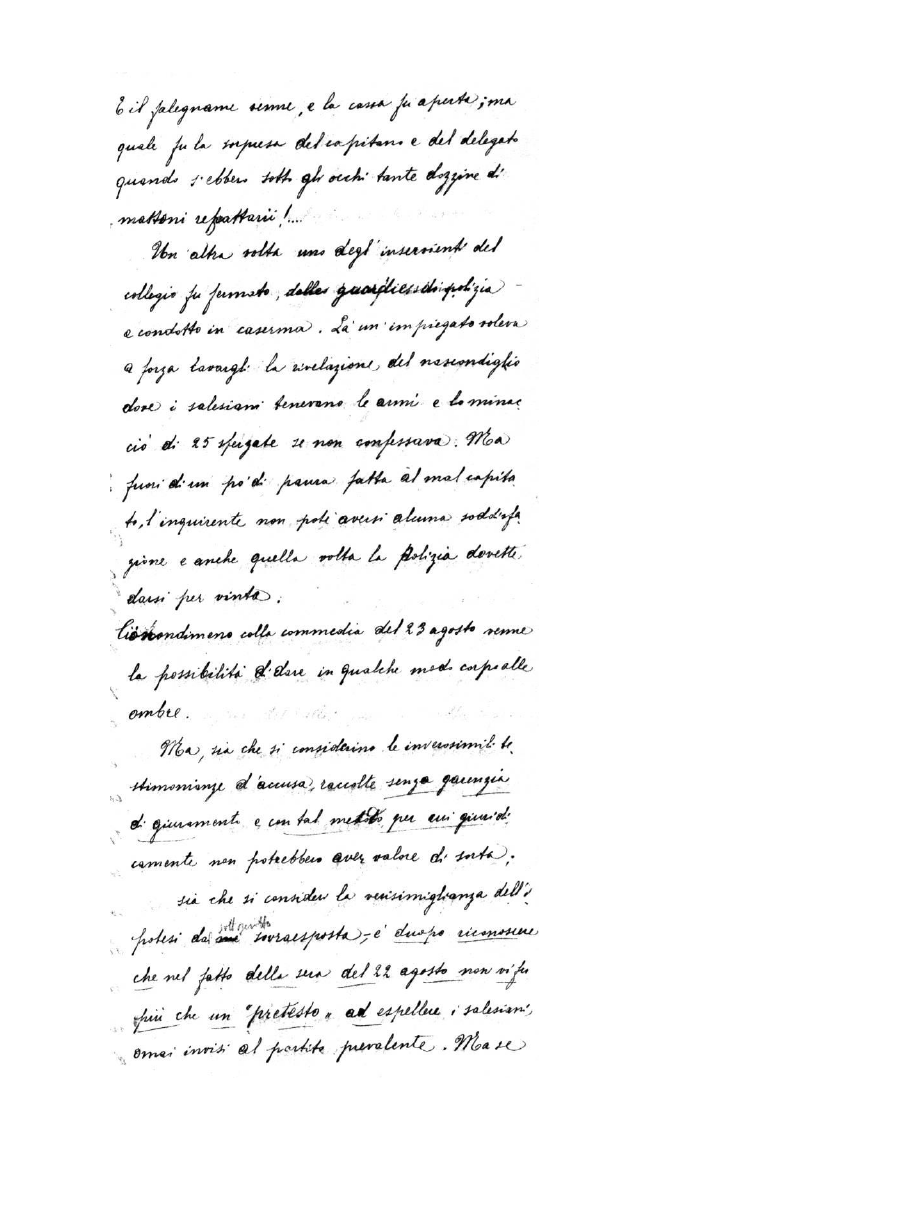 E il falegname venne, e la cassa fu aperta; ma
quale fu la sorpresa del capitano e del delegato
quando s'ebbero sotto gli occhi tante dozzine di
mattoni refrattarii!....
Un'altra volta uno degl'inservienti del
collegio fu fermato, dalle guardie di polizia
e condotto in caserma. Là un impiegato voleva
a forza cavargli la rivelazione, del nascondiglio
dove i salesiani tenevano le armi e lo minac
ciò di 25 sfergate se non confessava. Ma
fuori di un po' di paura fatta al mal capita
to, l'inquirente non poté aversi alcuna soddisfa
zione e anche quella volta la polizia dovette
darsi per vinta.
Ciónondimeno colla commedia del 23 agosto venne
la possibilità di dare in qualche modo corpo alle
ombre.
Ma, sia che si considerino le inverosimili te
stimonianze d'accusa, raccolte senza garenzia
di giuramento e con tal metodo per cui giuridi
camente non potrebbero aver valore di sorta;
sia che si consideri la verisimiglianza dell'i
potesi dal sottoscritto sovraesposta, - é duopo riconoscere
che nel fatto della sera del 22 agosto non vi fu
più che un "pretesto" ad espellere i salesiani,
omai invisi al partito prevalente. Ma se